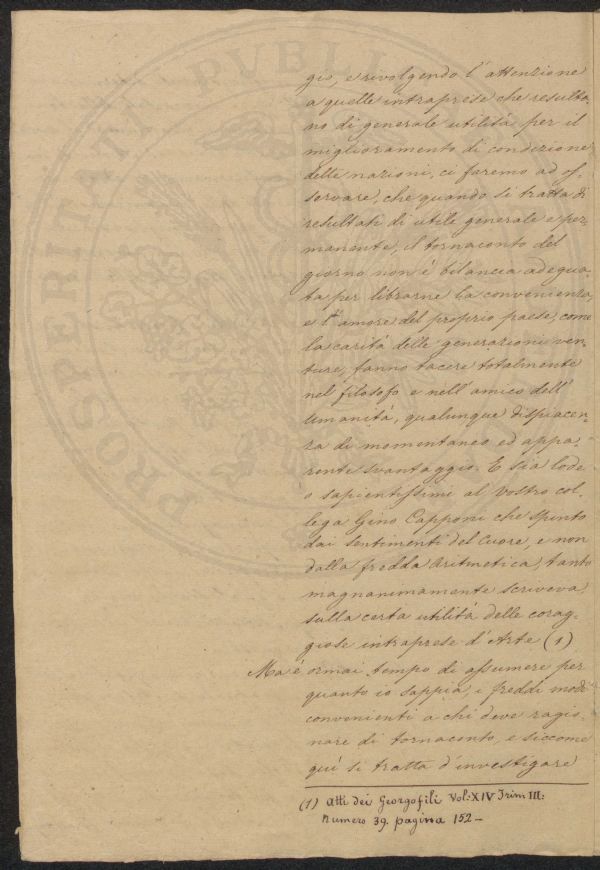 PROSPERITATI PVBLI
gio, e rivolgendo l'attenzione
a quelle intraprese che resulta-
no di generale utilità per il
miglioramento di condizione
delle nazioni, ci faremo ad os-
servare, che quando si tratta di
resultati di utile generale e per-
manente, il tornaconto del
giorno non è bilancia adegua-
ta per librarne la convenienza,
e l'amore del proprio paese, come
la carità delle generazioni ven-
ture, fanno tacere totalmente
nel filosofo e nell'amico dell'
umanità, qualunque dispiacen-
za di momentaneo ed appa-
rente svantaggio. E sia lode
o sapientissimi al vostro col-
lega Gino Capponi che spinto
dai sentimenti del Cuore, e non
dalla fredda Aritmetica, tanto
magnanimamente scriveva,
sulla certa utilità delle corag-
giose intraprese d'Arte (1)
Ma è ormai tempo di assumere per
quanto io sappia, i freddi modi
convenienti a chi deve ragio-
nare di tornaconto, e siccome
quì si tratta d'investigare
(1) Atti dei Georgofili Vol: XIV Trim III:
Numero 39. pagina 152 -